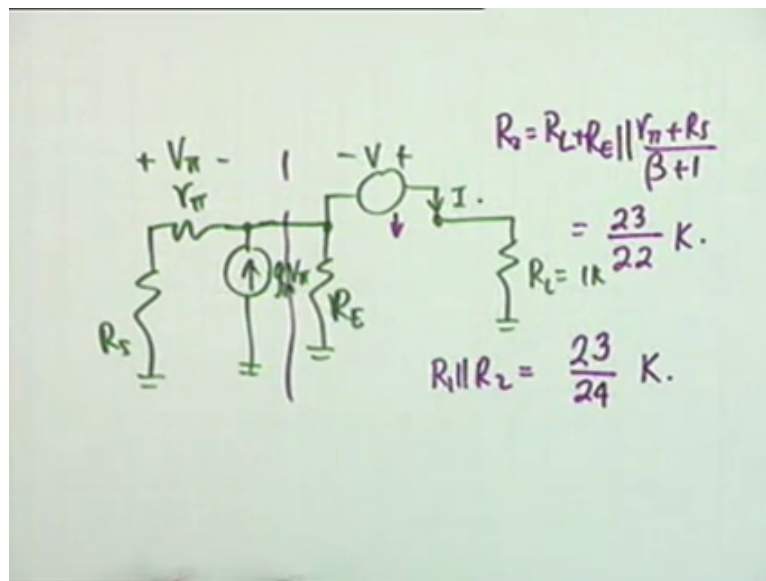 + Vπ -
rπ
Rs
gmVπ
RE
- V +
I.
RL = 1K
R2 = RL + RE || rπ + Rs / β + 1
= 23 / 22 K.
R1 || R2 = 23 / 24 K.